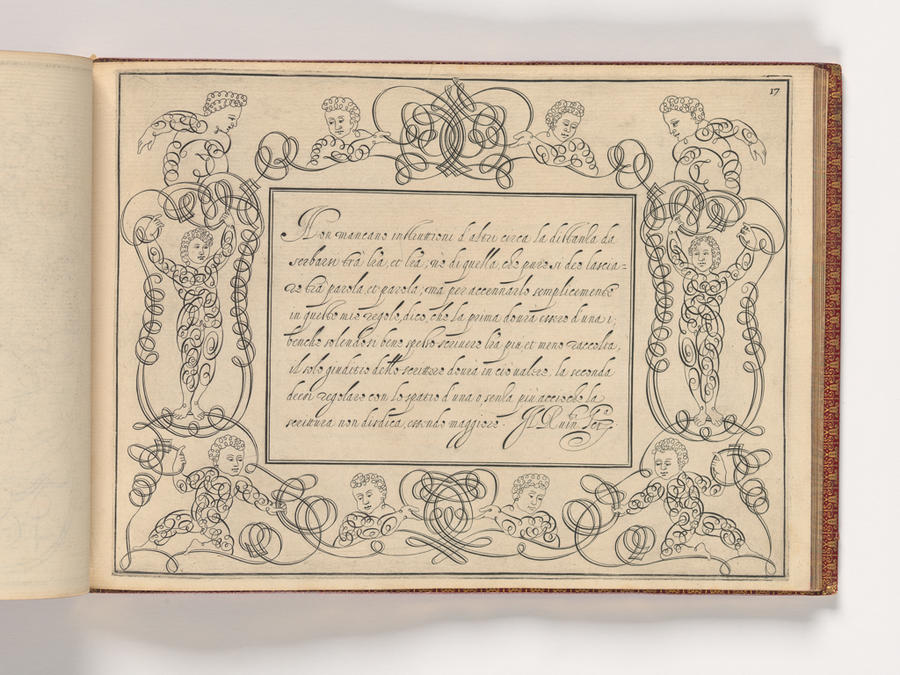 17
Non mancano instruttioni d'altri circa la distanza da
serbarsi trà lrā, et lrā, nè di quella, che pure si deè lascia=
re trà parola, et parola; mà per accennarlo semplicemente
in questo mio regolo, dico, che la prima dourà essere d'una i;
benche solendosi bene spesso scriuere lrā piu, et meno raccolta,
il solo giuditio dello scrittore dourà in ciò ualere, la seconda
deesi regolare con lo spatio d'una o senza più acciochè la
scrittura non disdica, essendo maggiore.